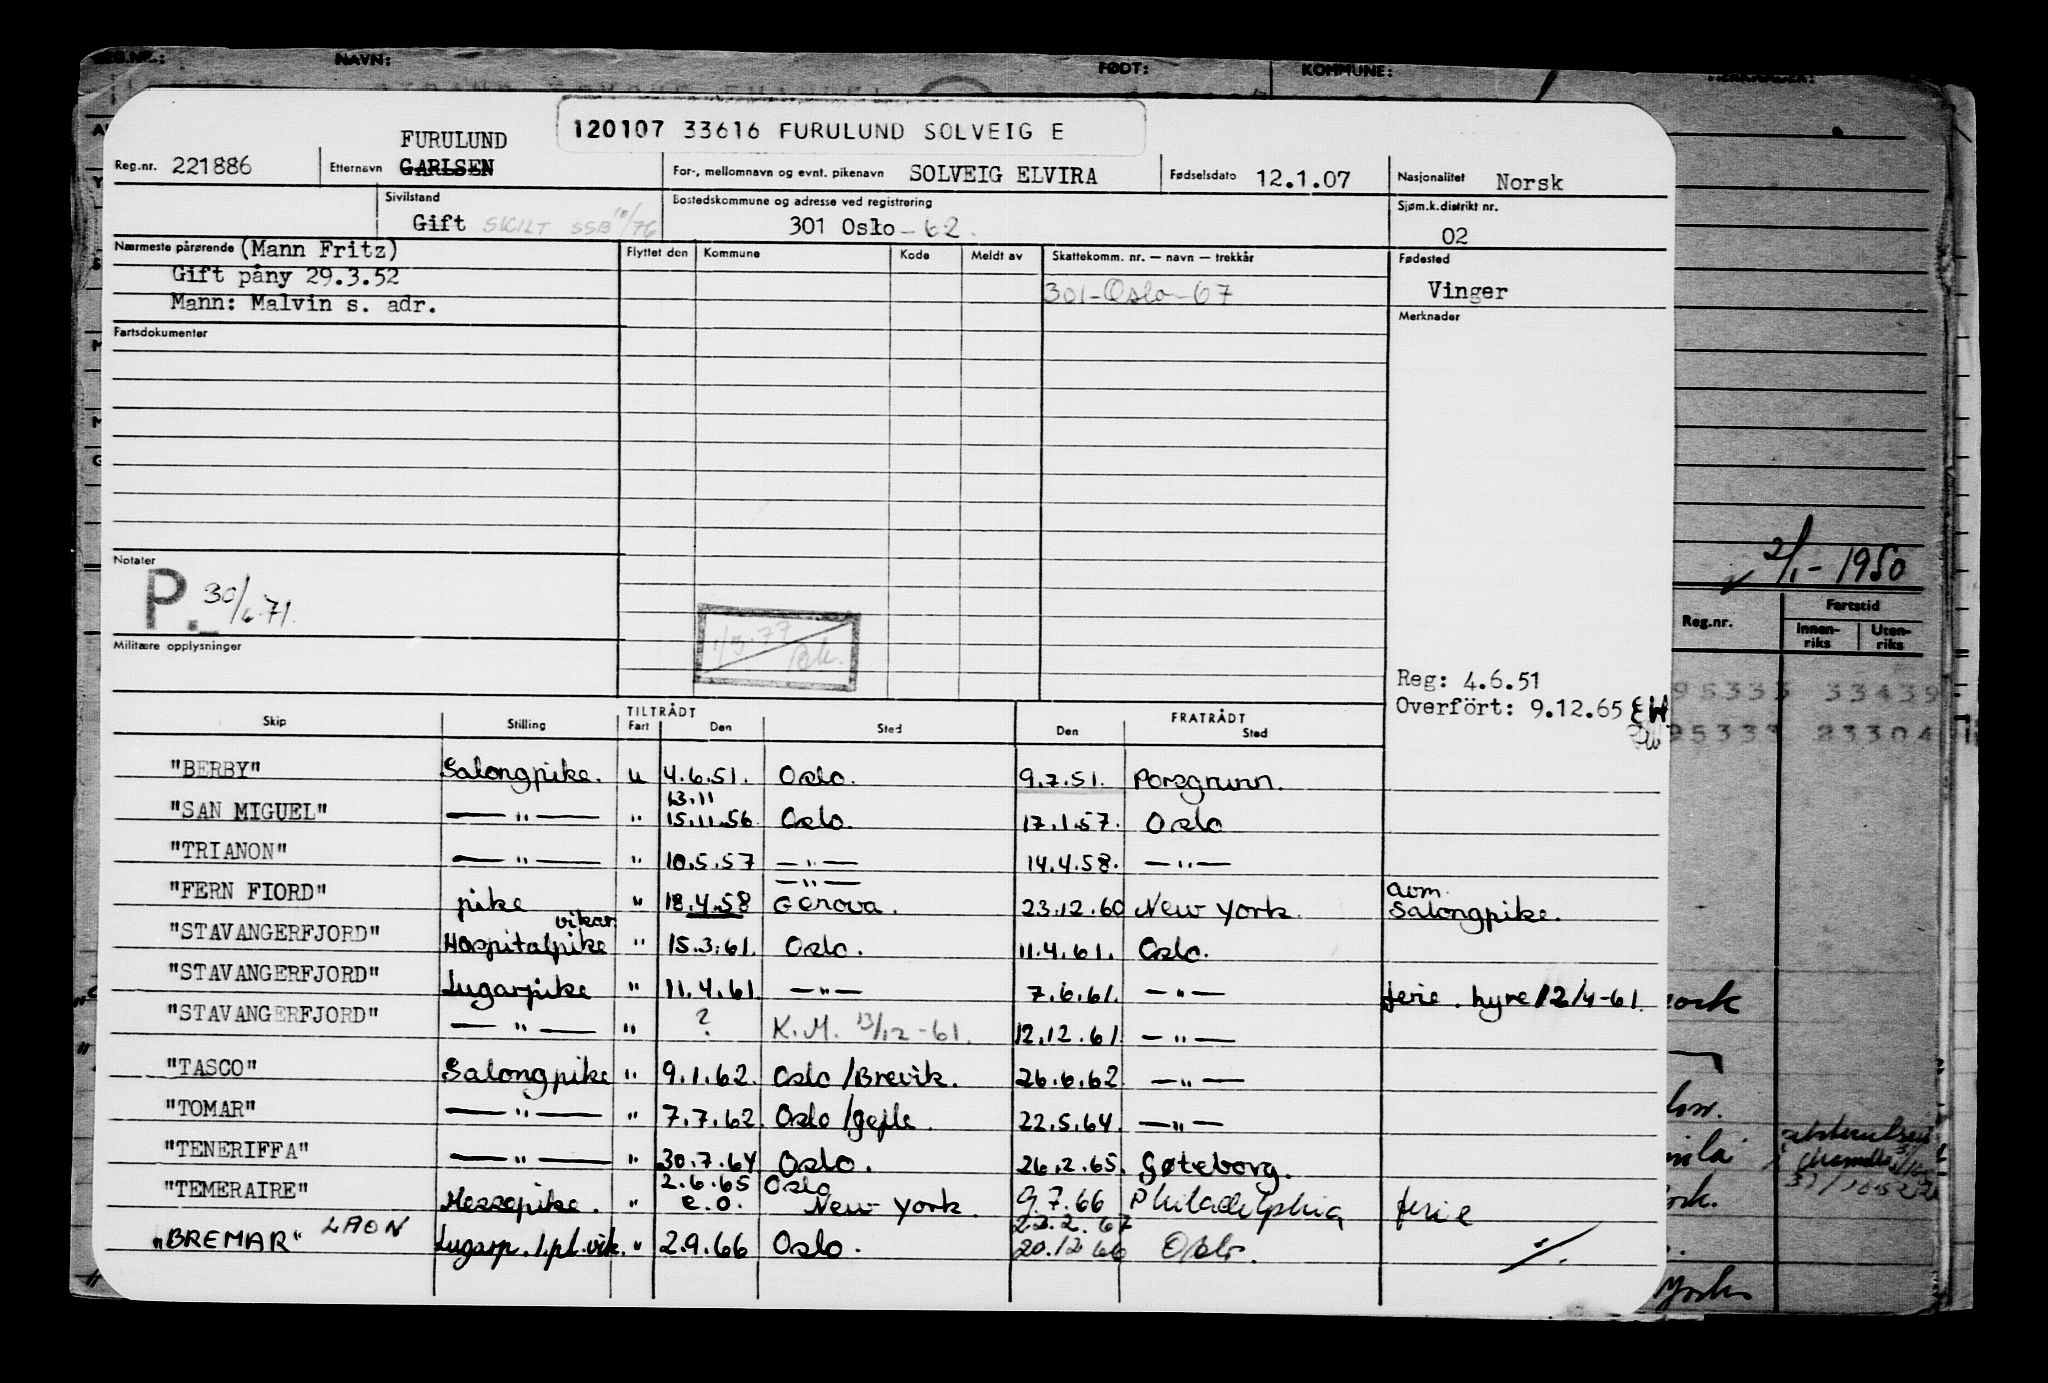 NAVN: FØDT: KOMMUNE:
120107 33616 FURULUND SOLVEIG E
FURULUND
Reg.nr. 221886 Etternavn GARLSEN For-, mellomnavn og evnt. pikenavn SOLVEIG ELVIRA Fødselsdato 12.1.07 Nasjonalitet Norsk
Sivilstand Gift SKILT SSB 10/76 Bostedskommune og adresse ved registrering 301 Oslo - 62. Sjøm.k.distrikt nr. 02
Nærmeste pårørende (Mann Fritz) Flyttet den Kommune Kode Meldt av Skattekomm. nr. — navn — trekkår Fødested
Gift påny 29.3.52 301-Oslo-67 Vinger
Mann: Malvin s. adr.
Fartsdokumenter Merknader
2/1 - 1950
Notater
P. 30/6-71.
1/3-77 Bk.
Militære opplysninger
Reg.nr. Fartstid
Innen-riks Uten-riks
Reg: 4.6.51
Overfört: 9.12.65 EW
95333 33439
95333 23304
TILTRÅDT FRATRÅDT
Skip Stilling Fart Den Sted Den Sted
"BERBY" Salongpike. u 4.6.51. Oslo. 9.7.51. Porsgrunn.
13.11
"SAN MIGUEL" — " — " 15.11.56 Oslo. 17.1.57. Oslo
"TRIANON" — " — " 10.5.57 — " — 14.4.58. — " —
— " —
"FERN FIORD" pike " 18.4.58 Genova. 23.12.60 New York. avm. Salongpike.
"STAVANGERFJORD" Hospitalpike vikar. " 15.3.61. Oslo. 11.4.61. Oslo.
"STAVANGERFJORD" Lugarpike " 11.4.61. — " — 7.6.61. — " — ferie. hyre 12/4-61.
"STAVANGERFJORD" — " — " ? K.M. 13/12-61. 12.12.61. — " —
"TASCO" Salongpike " 9.1.62. Oslo/Brevik. 26.6.62 — " —
"TOMAR" — " — " 7.7.62. Oslo/Gefle. 22.5.64. — " —
"TENERIFFA" — " — " 30.7.64. Oslo. 26.2.65. Gøteborg.
2.6.65 Oslo
"TEMERAIRE" Messepike. " e.o. New York. 9.7.66 Philadelphia ferie
23.2.67
"BREMAR" LAON Lugarp. 1.pl.vik. " 2.9.66 Oslo. 20.12.66 Oslo. ./.